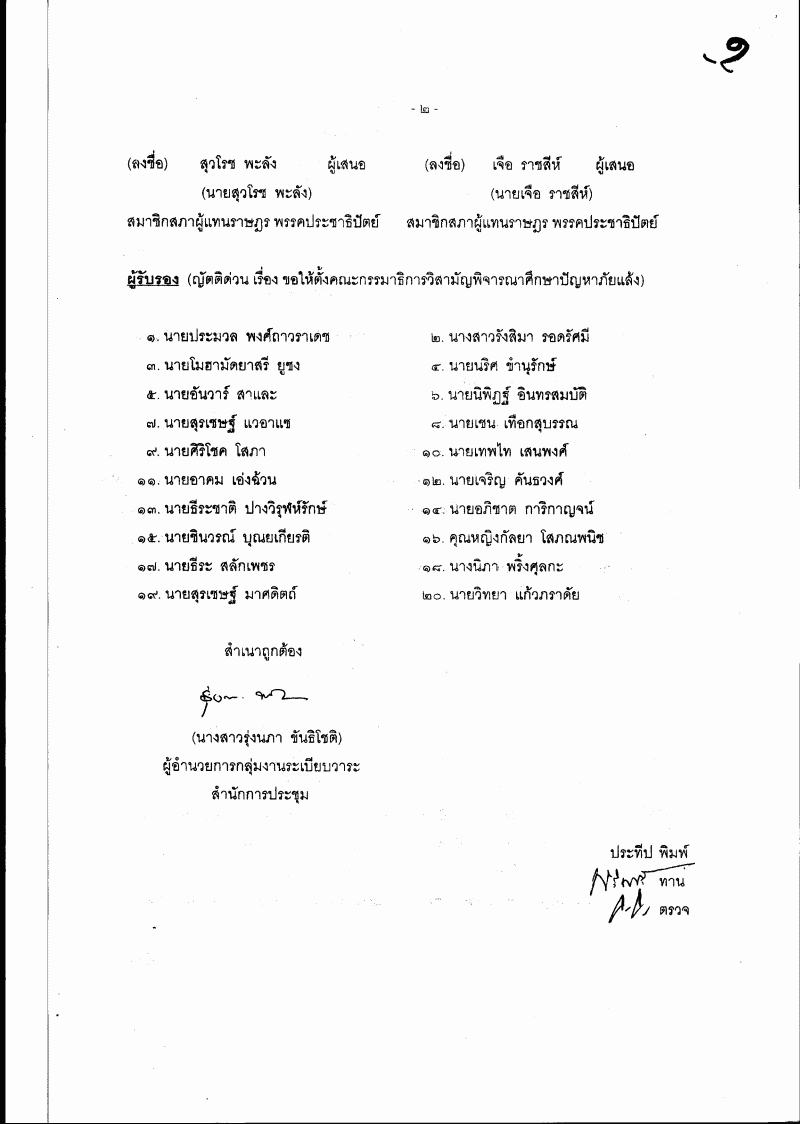 - ๒ -
(ลงชื่อ) สุวโรช พะลัง ผู้เสนอ (ลงชื่อ) เจือ ราชสีห์ ผู้เสนอ
(นายสุวโรช พะลัง) (นายเจือ ราชสีห์)
สมาชิกสภาผู้แทนราษฎร พรรคประชาธิปัตย์ สมาชิกสภาผู้แทนราษฎร พรรคประชาธิปัตย์
ผู้รับรอง (ญัตติด่วน เรื่อง ขอให้ตั้งคณะกรรมาธิการวิสามัญพิจารณาศึกษาปัญหาภัยแล้ง)
๑. นายประมวล พงศ์ถาวราเดช ๒. นางสาวรังสิมา รอดรัศมี
๓. นายโมฮามัดยาสรี ยูซง ๔. นายนริศ ขำนุรักษ์
๕. นายอันวาร์ สาและ ๖. นายนิพิฏฐ์ อินทรสมบัติ
๗. นายสุรเชษฐ์ แวอาแซ ๘. นายเชน เทือกสุบรรณ
๙. นายศิริโชค โสภา ๑๐. นายเทพไท เสนพงศ์
๑๑. นายอาคม เอ่งฉ้วน ๑๒. นายเจริญ คันธวงศ์
๑๓. นายธีระชาติ ปางวิรุฬห์รักษ์ ๑๔. นายอภิชาต การิกาญจน์
๑๕. นายชินวรณ์ บุณยเกียรติ ๑๖. คุณหญิงกัลยา โสภณพนิช
๑๗. นายธีระ สลักเพชร ๑๘. นางนิภา พริ้งศุลกะ
๑๙. นายสุรเชษฐ์ มาศดิตถ์ ๒๐. นายวิทยา แก้วภราดัย
สำเนาถูกต้อง
(นางสาวรุ่งนภา ขันธิโชติ)
ผู้อำนวยการกลุ่มงานระเบียบวาระ
สำนักการประชุม
ประทีป พิมพ์
ทาน
ตรวจ